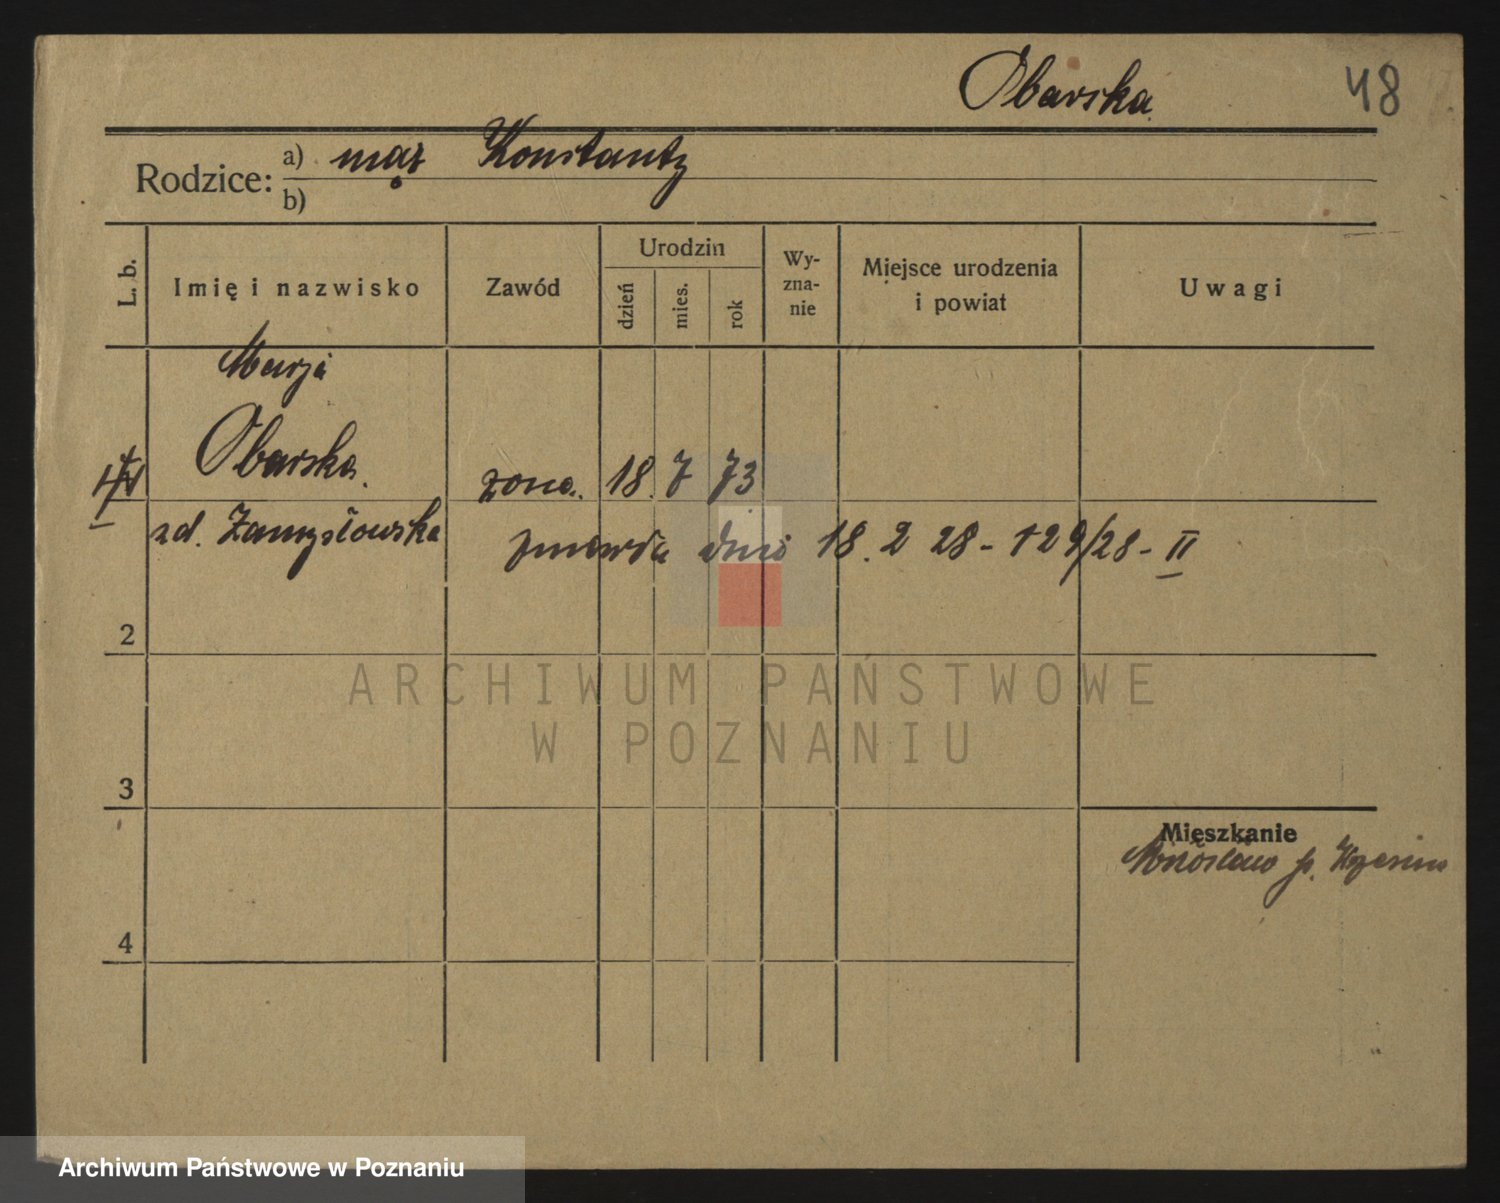 Obarska
48
Rodzice: a) mąż Konstanty
b)
L. b.
Imię i nazwisko
Zawód
Urodzin
dzień
mies.
rok
Wy-
zna-
nie
Miejsce urodzenia
i powiat
Uwagi
Marja
Obarska
żona. 18. 7 73
zd. Zamysłowska
zmarła dnia 18. 2 28 - 129/28 - II
2
ARCHIWUM PAŃSTWOWE
W POZNANIU
3
Mieszkanie
Miłosław p. Września
4
Archiwum Państwowe w Poznaniu